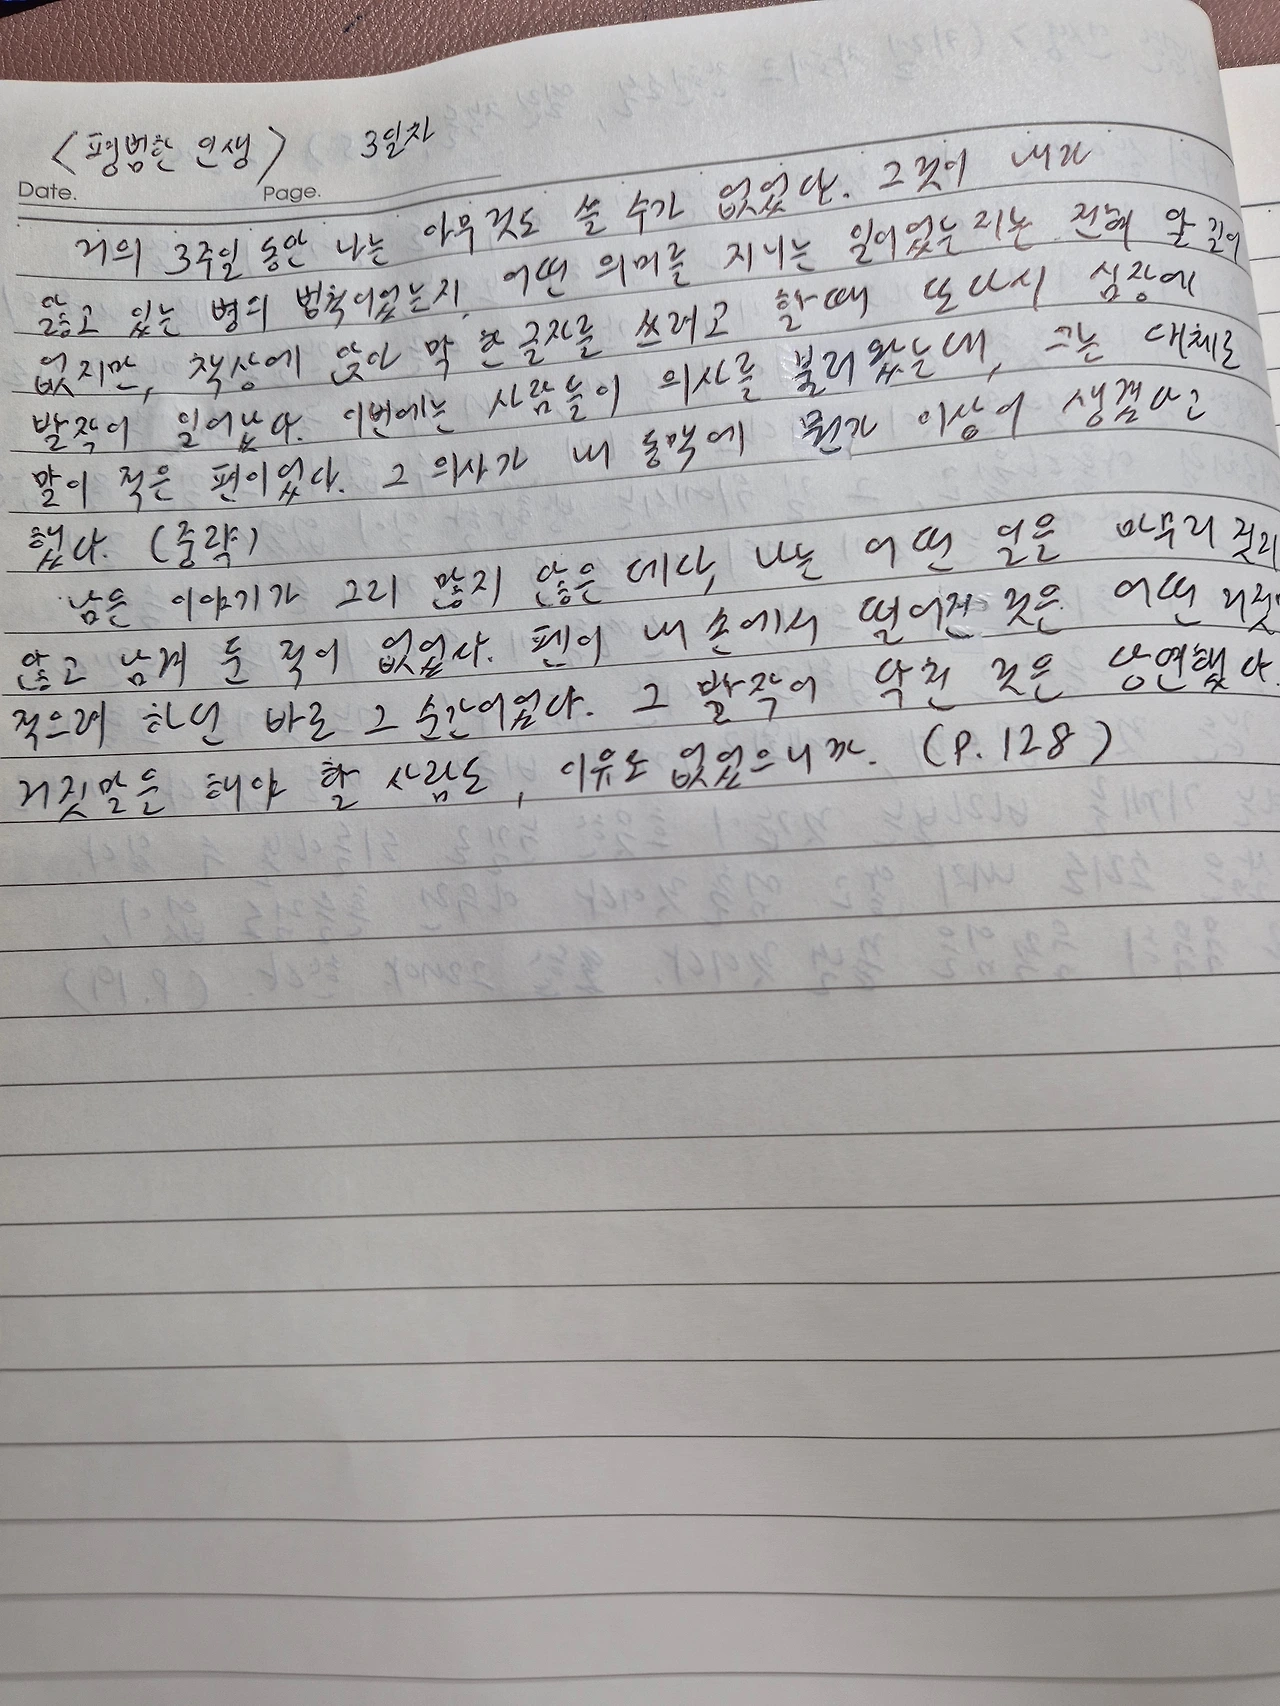 <평범한 인생> 3일차
Date. Page.
거의 3주일 동안 나는 아무것도 쓸 수가 없었다. 그것이 내가
앓고 있는 병의 법칙이었는지, 어떤 의미를 지니는 일이었는지는 전혀 알 길이
없지만, 책상에 앉아 막 한 글자를 쓰려고 할 때 또다시 심장에
발작이 일어났다. 이번에는 사람들이 의사를 불러왔는데, 그는 대체로
말이 적은 편이었다. 그 의사가 내 동맥에 뭔가 이상이 생겼다고
했다. (중략)
남은 이야기가 그리 많지 않은 데다, 나는 어떤 일을 마무리 짓지
않고 남겨 둔 적이 없었다. 펜이 내 손에서 떨어진 것은 어떤 거짓말
적으려 하던 바로 그 순간이었다. 그 발작이 닥친 것은 당연했다.
거짓말을 해야 할 사람도, 이유도 없었으니까. (P. 128)